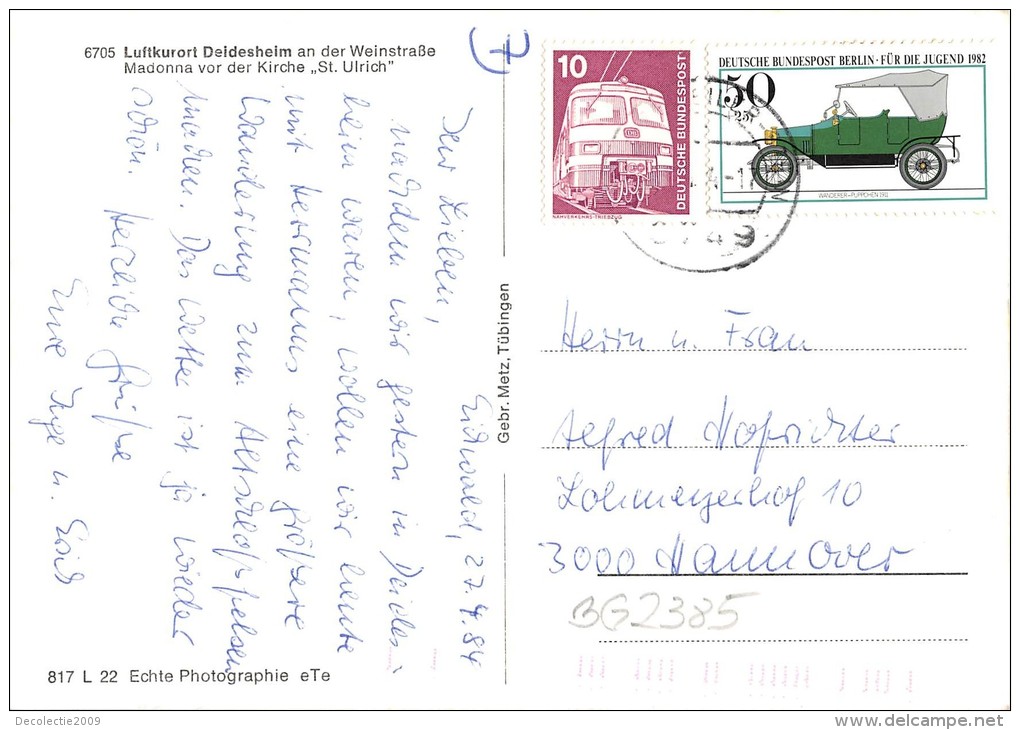 6705 Luftkurort Deidesheim an der Weinstraße
Madonna vor der Kirche „St. Ulrich"
7)
10
DEUTSCHE BUNDESPOST
NAHVERKEHRS-TRIEBZUG
DEUTSCHE BUNDESPOST BERLIN · FÜR DIE JUGEND 1982
50
+25
WANDERER - PUPPCHEN 1911
6749
27.4.84
Ihr Lieben,
nachdem wir gestern in Deides-
heim waren, wollen wir heute
mit Hermanns eine größere
Wanderung zum
machen. Das Wetter ist ja wieder
schön.
Herzliche Grüße
Eure Inge u. Erich
Gebr. Metz, Tübingen
Herrn u. Frau
Alfred Hofrichter
Lohmeyerhof 10
3000 Hannover
BG2385
817 L 22 Echte Photographie eTe
Decolectie2009
www.delcampe.net